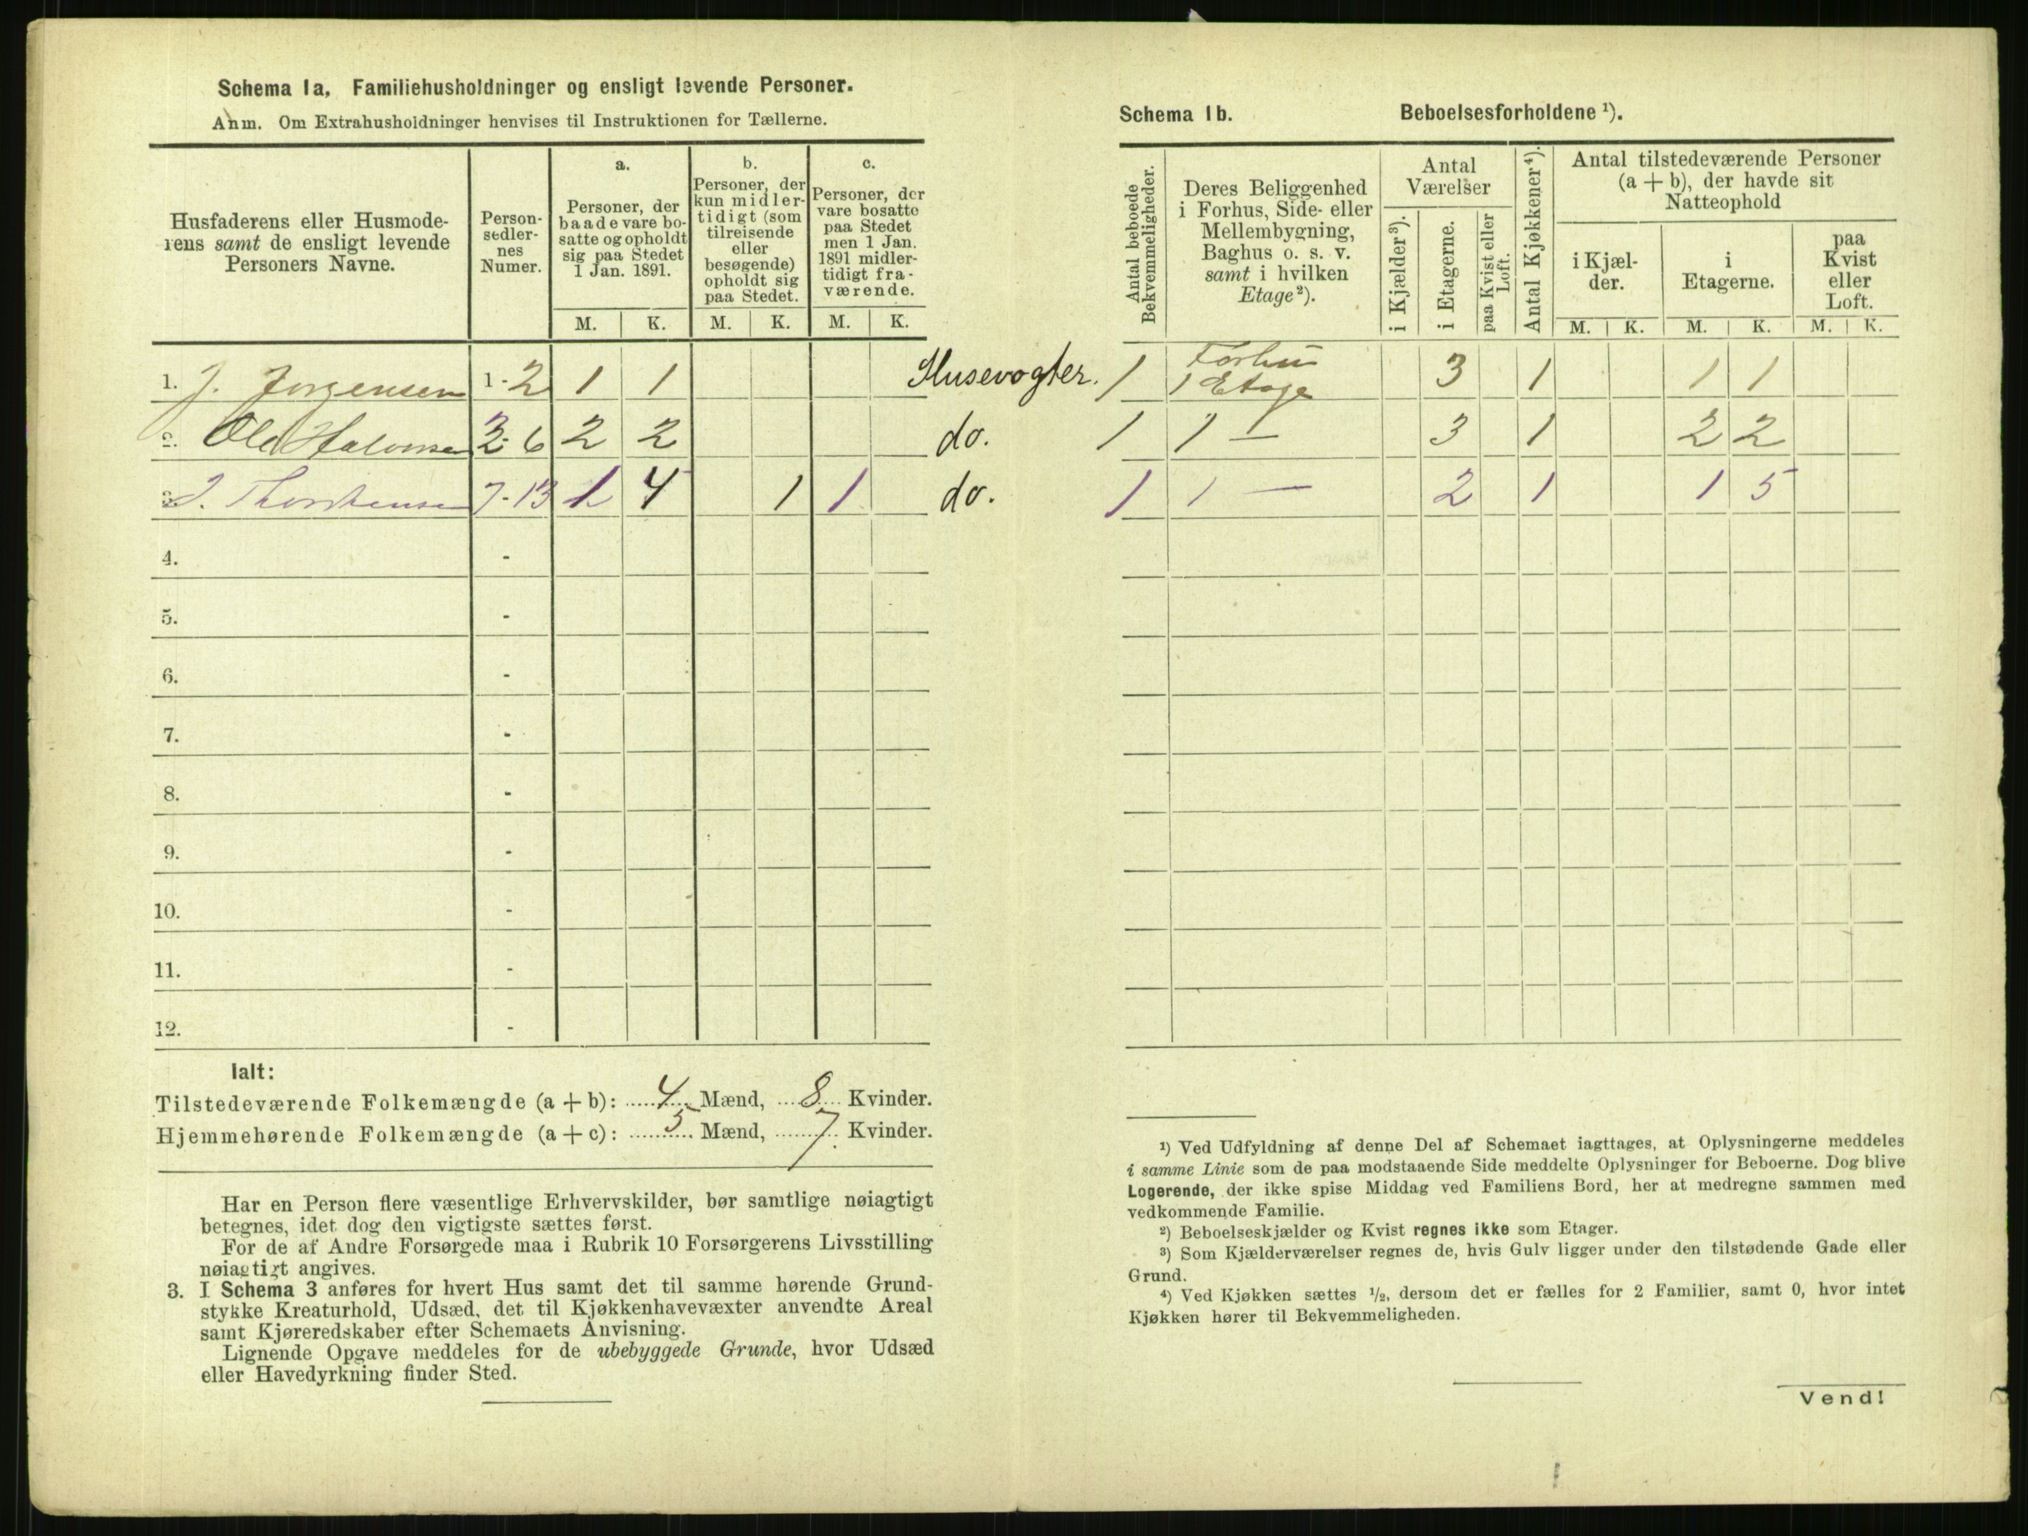 Schema 1a. Familiehusholdninger og ensligt levende Personer.
Anm. Om Extrahusholdninger henvises til Instruktionen for Tællerne.
Husfaderens eller Husmoderens samt de ensligt levende Personers Navne.
Personsedlernes Numer.
a.
Personer, der baade vare bosatte og opholdt sig paa Stedet 1 Jan. 1891.
b.
Personer, der kun midlertidigt (som tilreisende eller besøgende) opholdt sig paa Stedet.
c.
Personer, der vare bosatte paa Stedet men 1 Jan. 1891 midlertidigt fraværende.
M. K. M. K. M. K.
1. J. Jorgensen 1-2 1 1 Husevogter.
2. Ole Halvorsen 3-6 2 2 do.
3. J. Thorstensen 7-13 1 4 1 1 do.
4. -
5. -
6. -
7. -
8. -
9. -
10. -
11. -
12. -
Ialt:
Tilstedeværende Folkemængde (a + b): 4 Mænd, 8 Kvinder.
Hjemmehørende Folkemængde (a + c): 5 Mænd, 7 Kvinder.
Har en Person flere væsentlige Erhvervskilder, bør samtlige nøiagtigt
betegnes, idet dog den vigtigste sættes først.
For de af Andre Forsørgede maa i Rubrik 10 Forsørgerens Livsstilling
nøiagtigt angives.
3. I Schema 3 anføres for hvert Hus samt det til samme hørende Grund-
stykke Kreaturhold, Udsæd, det til Kjøkkenhavevæxter anvendte Areal
samt Kjøreredskaber efter Schemaets Anvisning.
Lignende Opgave meddeles for de ubebyggede Grunde, hvor Udsæd
eller Havedyrkning finder Sted.
Schema 1b. Beboelsesforholdene ¹).
Antal beboede Bekvemmeligheder.
Deres Beliggenhed i Forhus, Side- eller Mellembygning, Baghus o. s. v. samt i hvilken Etage ²).
Antal Værelser
i Kjælder ³).
i Etagerne.
paa Kvist eller Loft.
Antal Kjøkkener ⁴).
Antal tilstedeværende Personer (a + b), der havde sit Natteophold
i Kjælder.
i Etagerne.
paa Kvist eller Loft.
M. K. M. K. M. K.
1 Forhus 1 Etage 3 1 1 1
1 1 — 3 1 2 2
1 1 — 2 1 1 5
¹) Ved Udfyldning af denne Del af Schemaet iagttages, at Oplysningerne meddeles
i samme Linie som de paa modstaaende Side meddelte Oplysninger for Beboerne. Dog blive
Logerende, der ikke spise Middag ved Familiens Bord, her at medregne sammen med
vedkommende Familie.
²) Beboelseskjælder og Kvist regnes ikke som Etager.
³) Som Kjælderværelser regnes de, hvis Gulv ligger under den tilstødende Gade eller
Grund.
⁴) Ved Kjøkken sættes ½, dersom det er fælles for 2 Familier, samt 0, hvor intet
Kjøkken hører til Bekvemmeligheden.
Vend!